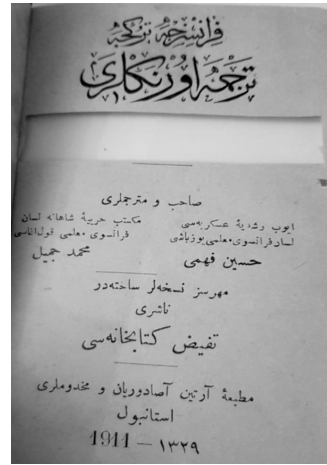 فرانسزجه تركجه
ترجمه اورنكلرى
صاحب و مترجملرى
ايوب رشديۀ عسكريه‌سى
لسان فرانسوى معلمى يوزباشى
حسين فهمى
مكتب حربيۀ شاهانه لسان
فرانسوى معلمى قول اغاسى
محمد جميل
مهرسز نسخه‌لر ساخته‌در
ناشرى
تفيض كتابخانه‌سى
مطبعۀ آرتين آصادوريان و مخدوملرى
استانبول
١٣٢٩ — 1911